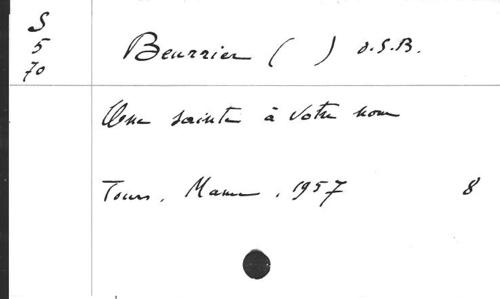 S
5
70
Beurrier ( ) O.S.B.
Une sainte à votre nom
Tours, Mame, 1957 8